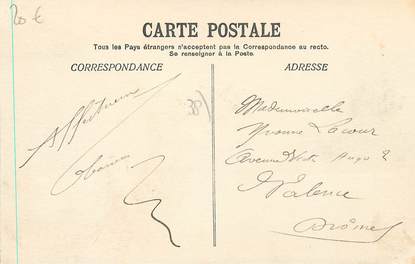 20 €
CARTE POSTALE
Tous les Pays étrangers n'acceptent pas la Correspondance au recto.
Se renseigner à la Poste.
CORRESPONDANCE
ADRESSE
38)
Mademoiselle
Yvonne Lacour
Avenue Victor Hugo 2
Valence
Drôme